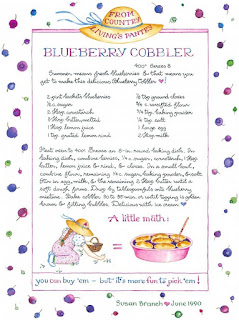 FROM COUNTRY
LIVING'S PANTRY
BLUEBERRY COBBLER
400° Serves 8
Summer means fresh blueberries & that means you
get to make this delicious Blueberry Cobbler!
2 pint baskets blueberries
1/2 c. sugar
2 tbsp. cornstarch
3 tbsp. butter, melted
1 tbsp. lemon juice
1 tsp. grated lemon rind
1/2 tsp ground cloves
3/4 c. unsifted flour
3/4 tsp. baking powder
1/4 tsp. salt
1 large egg
2 tbsp. milk
Heat oven to 400°. Grease an 8-in. round baking dish. In
baking dish, combine berries, 1/4 c. sugar, cornstarch, 1 tbsp.
butter, lemon juice & rind, & cloves. In a small bowl,
combine flour, remaining 1/4 c. sugar, baking powder, & salt.
Stir in egg, milk, & the remaining 2 tbsp. butter until a
soft dough forms. Drop by tablespoonfuls onto blueberry
mixture. Bake cobbler 30 to 35 min. or until topping is golden
brown & filling bubbles. Delicious with ice cream
A little math:
=
you can buy 'em – but it's more fun to pick 'em!
Susan Branch ♥ June 1990